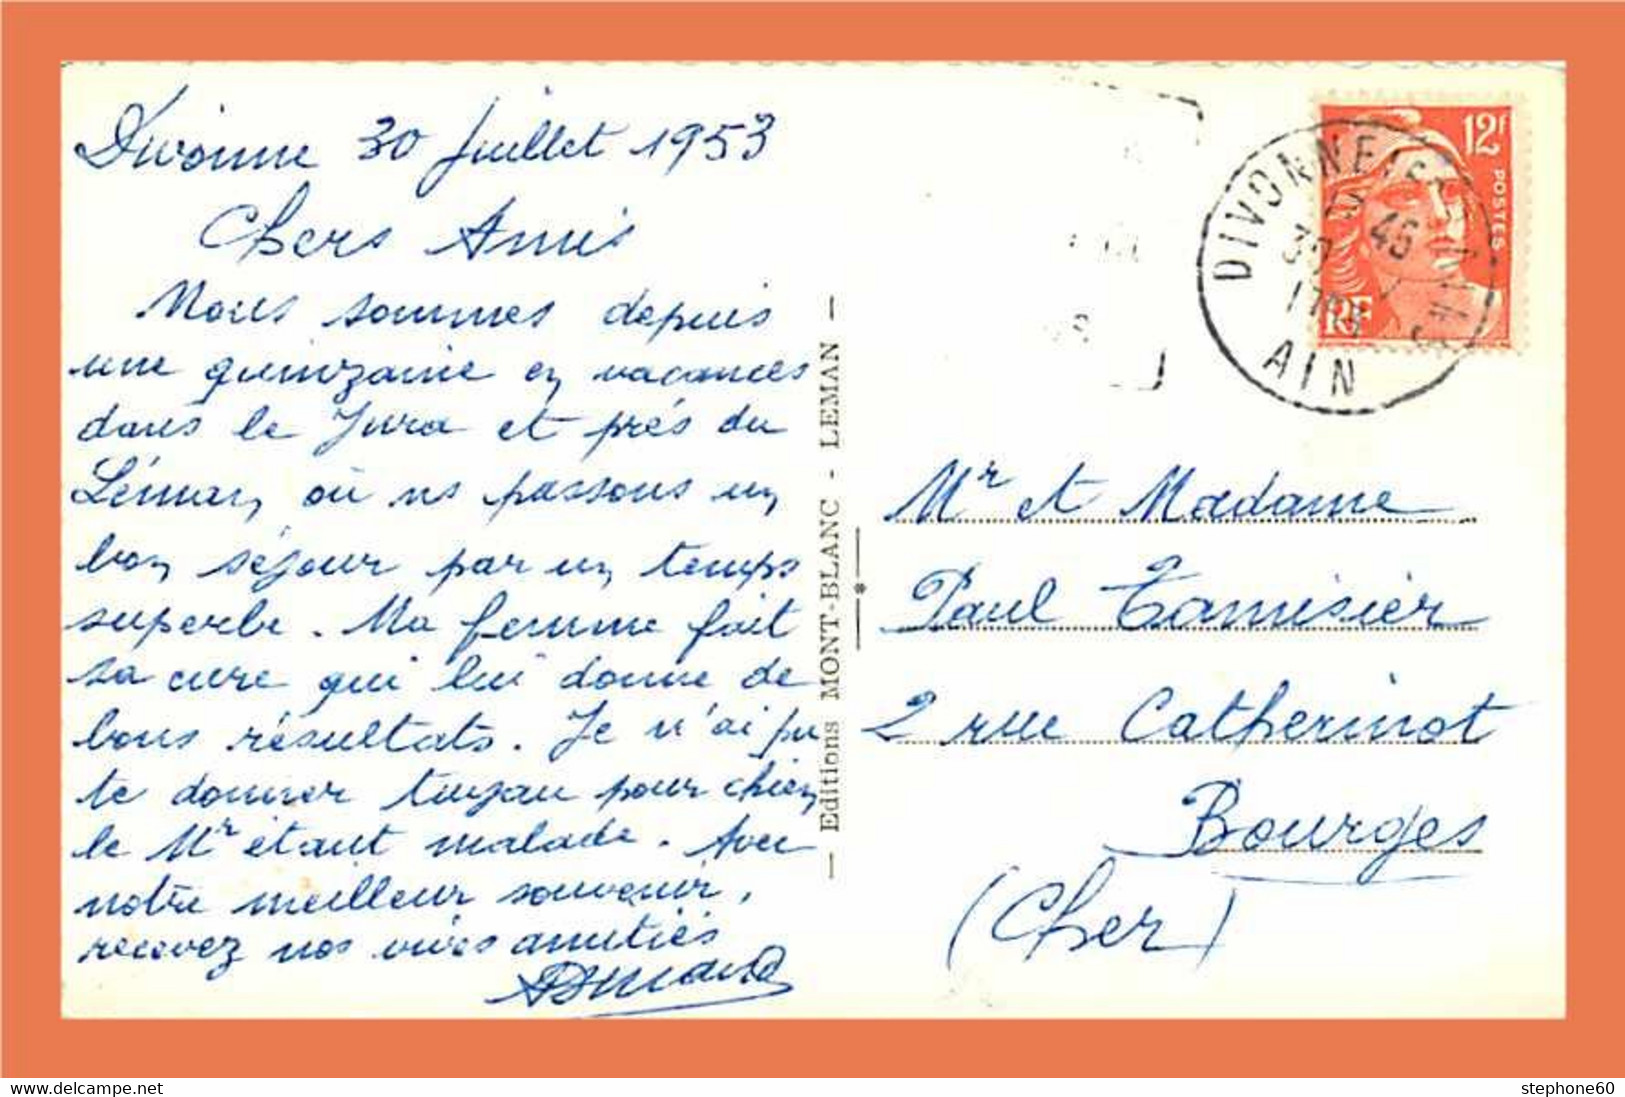 Divonne 30 Juillet 1953
Chers Amis
Nous sommes depuis
une quinzaine en vacances
dans le Jura et près du
Léman, où ns passons un
bon séjour par un temps
superbe. Ma femme fait
sa cure qui lui donne de
bons résultats. Je n'ai pu
te donner tuyau pour chien
le Mr étant malade. Avec
notre meilleur souvenir,
recevez nos vives amitiés
— Editions MONT-BLANC - LEMAN —
12F
POSTES
RF
DIVONNE
30
AIN
Mr et Madame
Paul Tamisier
2 rue Catherinot
Bourges
(Cher)
stephone60
www.delcampe.net